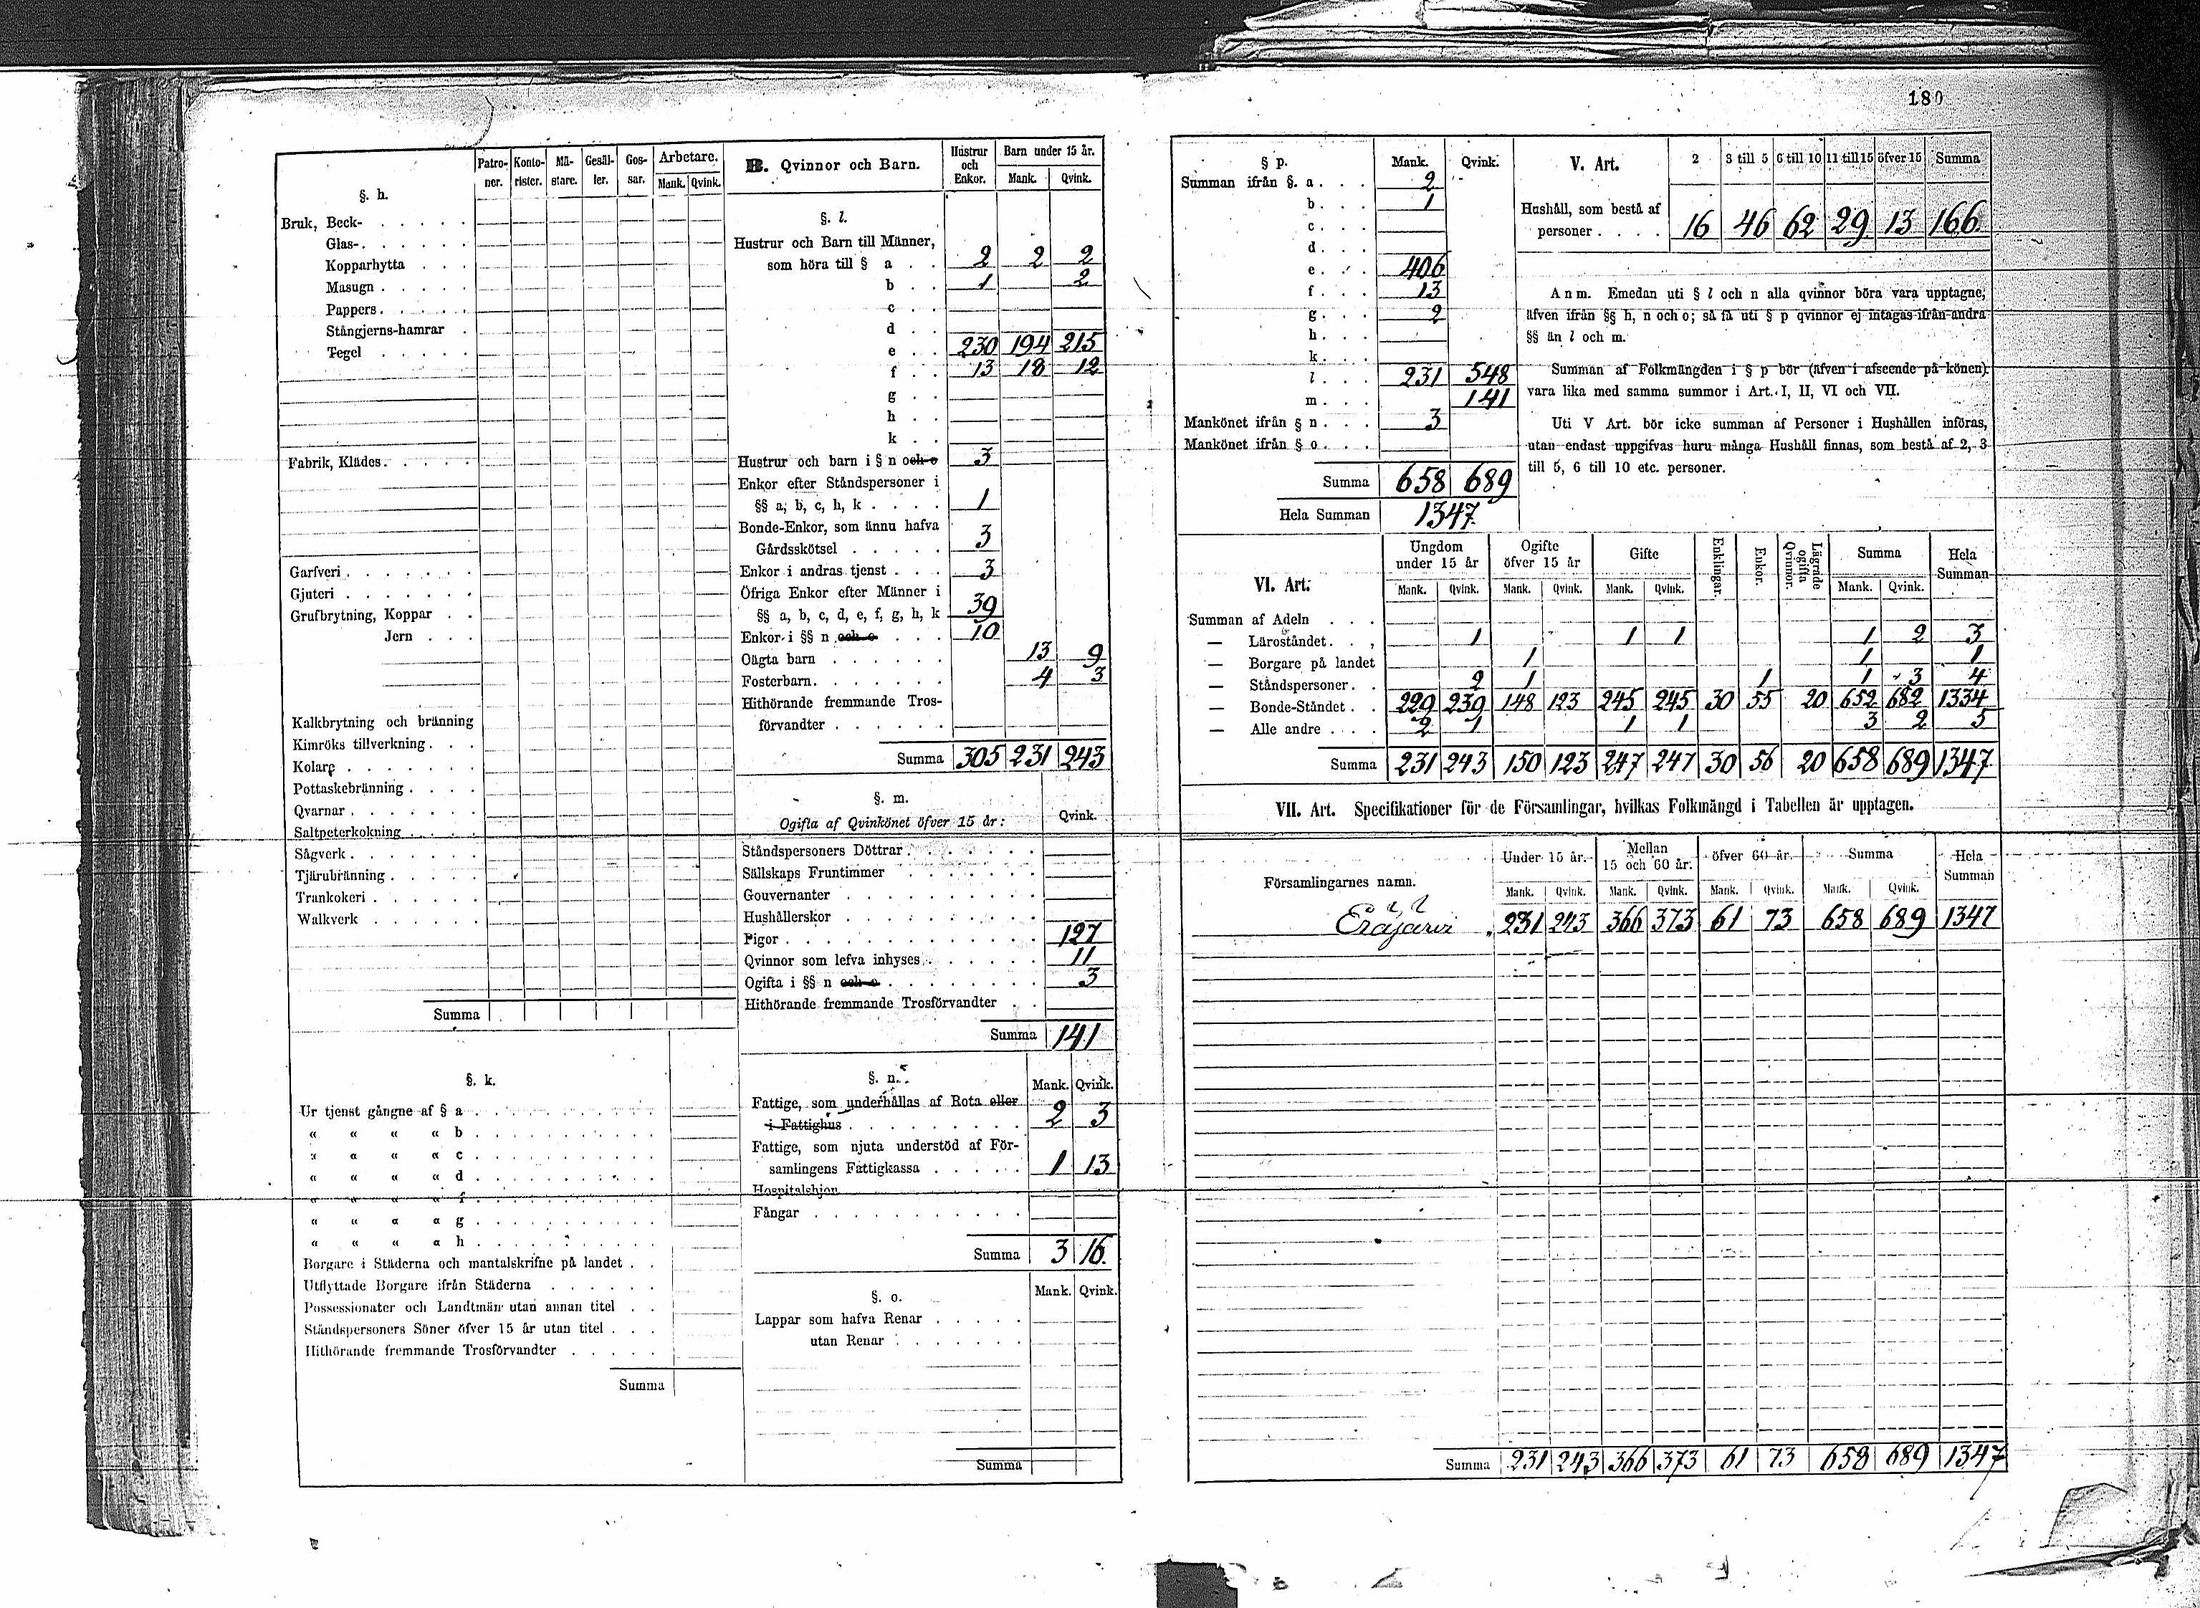 180
§. h.
Patro- ner. Konto- rister. Mä- stare. Gesäl- ler. Gos- sar. Arbetare. Mank. Qvink.
Bruk, Beck-
Glas-
Kopparhytta
Masugn
Pappers
Stångjerns-hamrar
Tegel
Fabrik, Klädes
Garfveri
Gjuteri
Grufbrytning, Koppar
Jern
Kalkbrytning och bränning
Kimröks tillverkning
Kolare
Pottaskebränning
Qvarnar
Saltpeterkokning
Sågverk
Tjärubränning
Trankokeri
Walkverk
Summa
§. k.
Ur tjenst gångne af § a
« « « « b
« « « « c
« « « « d
« « « « f
« « « « g
« « « « h
Borgare i Städerna och mantalskrifne på landet
Utflyttade Borgare ifrån Städerna
Possessionater och Landtmän utan annan titel
Ståndspersoners Söner öfver 15 år utan titel
Hithörande fremmande Trosförvandter
Summa
B. Qvinnor och Barn. Hustrur och Enkor. Barn under 15 år. Mank. Qvink.
§. l.
Hustrur och Barn till Männer,
som höra till § a 2 2 2
b 1 2
c
d
e 230 194 215
f 13 18 12
g
h
k
Hustrur och barn i § n och o 3
Enkor efter Ståndspersoner i
§§ a, b, c, h, k 1
Bonde-Enkor, som ännu hafva
Gårdsskötsel 3
Enkor i andras tjenst 3
Öfriga Enkor efter Männer i
§§ a, b, c, d, e, f, g, h, k 39
Enkor i §§ n och o 10
Oägta barn 13 9
Fosterbarn 4 3
Hithörande fremmande Tros-
förvandter
Summa 305 231 243
§. m.
Ogifta af Qvinkönet öfver 15 år: Qvink.
Ståndspersoners Döttrar
Sällskaps Fruntimmer
Gouvernanter
Hushållerskor
Pigor 127
Qvinnor som lefva inhyses 11
Ogifta i §§ n och o 3
Hithörande fremmande Trosförvandter
Summa 141
§. n. Mank. Qvink.
Fattige, som underhållas af Rota eller
i Fattighus 2 3
Fattige, som njuta understöd af För-
samlingens Fattigkassa 1 13
Hospitalshjon
Fångar
Summa 3 16
§. o. Mank. Qvink.
Lappar som hafva Renar
utan Renar
Summa
§ p. Mank. Qvink.
Summan ifrån §. a 2
b 1
c
d
e 406
f 13
g 2
h
k
l 231 548
m 141
Mankönet ifrån § n 3
Mankönet ifrån § o
Summa 658 689
Hela Summan 1347
V. Art. 2 3 till 5 6 till 10 11 till 15 öfver 15 Summa
Hushåll, som bestå af
personer 16 46 62 29 13 166
Anm. Emedan uti § l och n alla qvinnor böra vara upptagne,
äfven ifrån §§ h, n och o; så få uti § p qvinnor ej intagas ifrån andra
§§ än l och m.
Summan af Folkmängden i § p bör (äfven i afseende på könen)
vara lika med samma summor i Art. I, II, VI och VII.
Uti V Art. bör icke summan af Personer i Hushållen införas,
utan endast uppgifvas huru många Hushåll finnas, som bestå af 2, 3
till 5, 6 till 10 etc. personer.
VI. Art. Ungdom under 15 år Ogifte öfver 15 år Gifte Enklingar. Enkor. Lägrade ogifta Qvinnor. Summa Hela Summan
Mank. Qvink. Mank. Qvink. Mank. Qvink. Mank. Qvink.
Summan af Adeln
— Läroståndet 1 1 1 1 2 3
— Borgare på landet 1 1 1
— Ståndspersoner 2 1 1 1 3 4
— Bonde-Ståndet 229 239 148 123 245 245 30 55 20 652 682 1334
— Alle andre 2 1 1 1 3 2 5
Summa 231 243 150 123 247 247 30 56 20 658 689 1347
VII. Art. Specifikationer för de Församlingar, hvilkas Folkmängd i Tabellen är upptagen.
Församlingarnes namn. Under 15 år. Mellan 15 och 60 år. öfver 60 år. Summa Hela Summan
Mank. Qvink. Mank. Qvink. Mank. Qvink. Mank. Qvink.
Eräjärvi 231 243 366 373 61 73 658 689 1347
Summa 231 243 366 373 61 73 658 689 1347